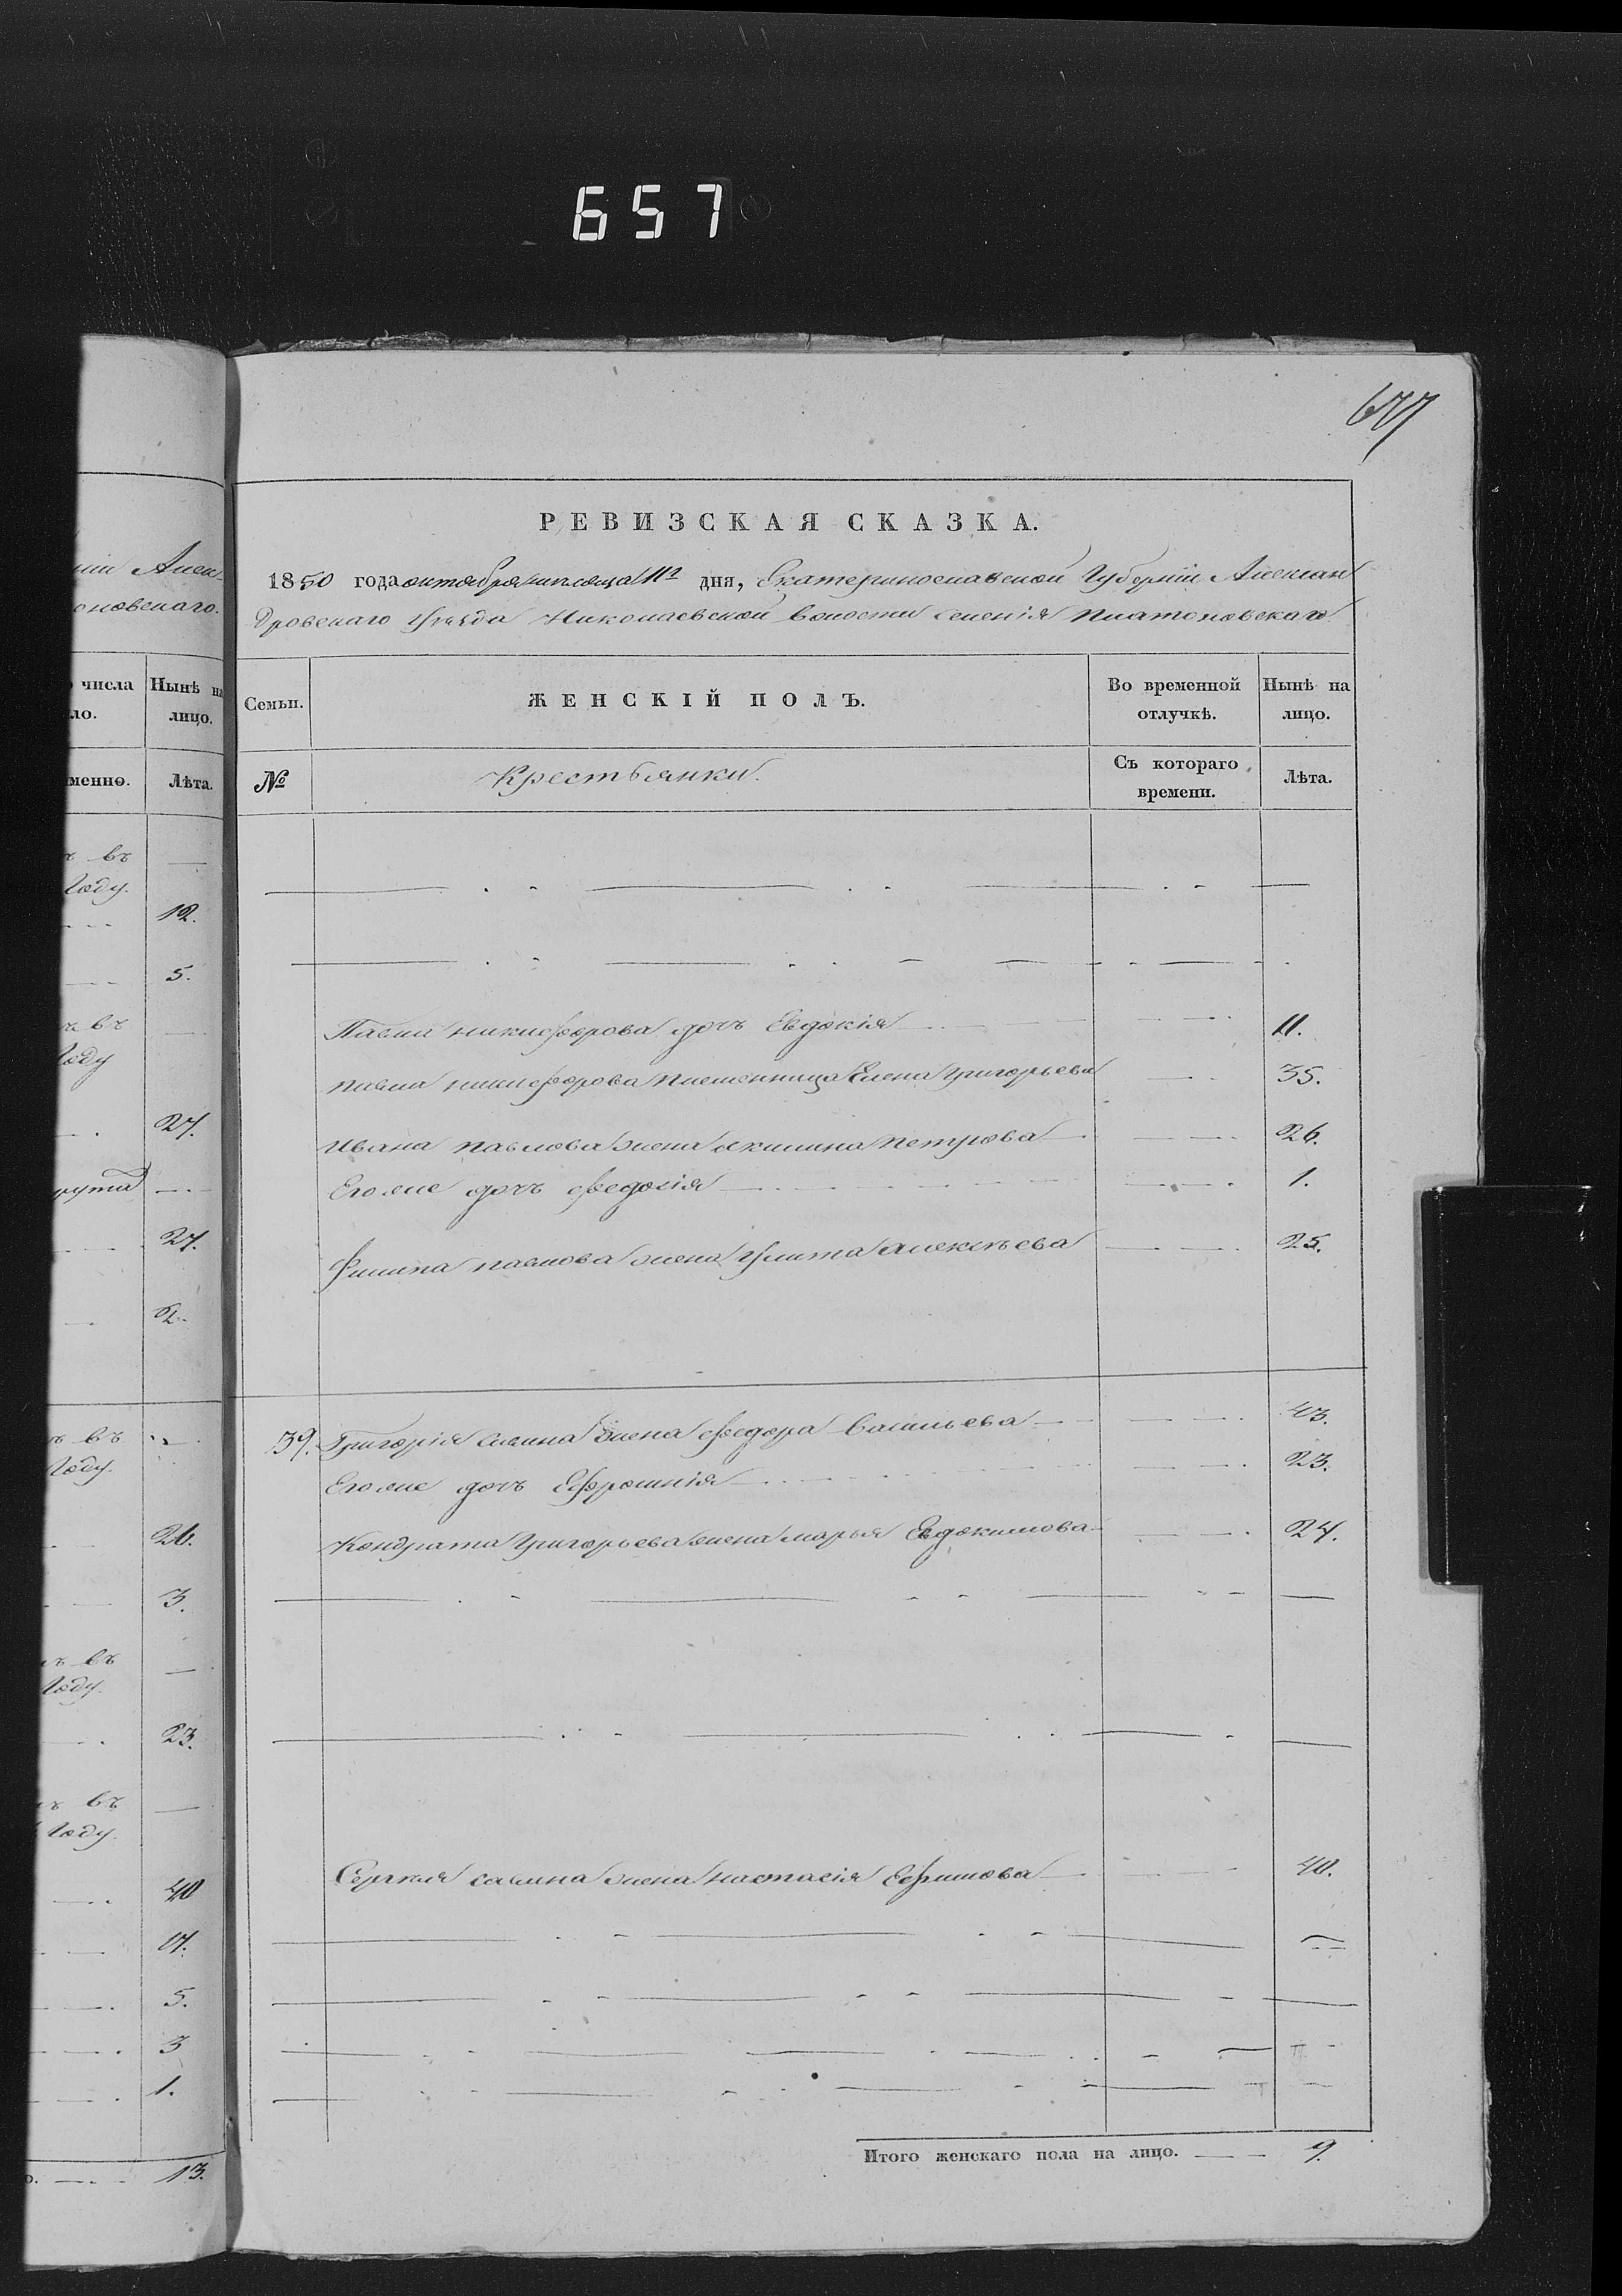 657
657
нии Алек-
оновскаго.
числа
Нынѣ на
ло.
лицо.
менно.
Лѣта.
въ
Году.
12.
5.
въ
Году
27.
рута
27.
2.
въ
Году.
26.
3.
въ
Году.
23.
въ
Году.
40
17.
5.
3
1.
13.
РЕВИЗСКАЯ СКАЗКА.
1850 года октября месяца 11го дня, Екатеринославской Губернии Алексан
дровскаго уѣзда Николаевской волости селенія Платоновскаго
Семьи.
ЖЕНСКІЙ ПОЛЪ.
Во временной отлучкѣ.
Нынѣ на лицо.
№
Крестьянки.
Съ котораго времени.
Лѣта.
Павла никифорова дочь Евдокія 11.
павла никифорова племенница Елена Григорьева 35.
Ивана павлова жена акилина петрова 26.
Его же дочь федосія 1.
Филипа павлова жена Улита Алексѣева 25.
39. Григорія савина жена федора Васильева 43.
Его же дочь Ефросинія 23.
Кондрата Григорьева жена марья Евдокимова 24.
Сергея савина жена настасія Ефимова 40.
Итого женскаго пола на лицо. 9.